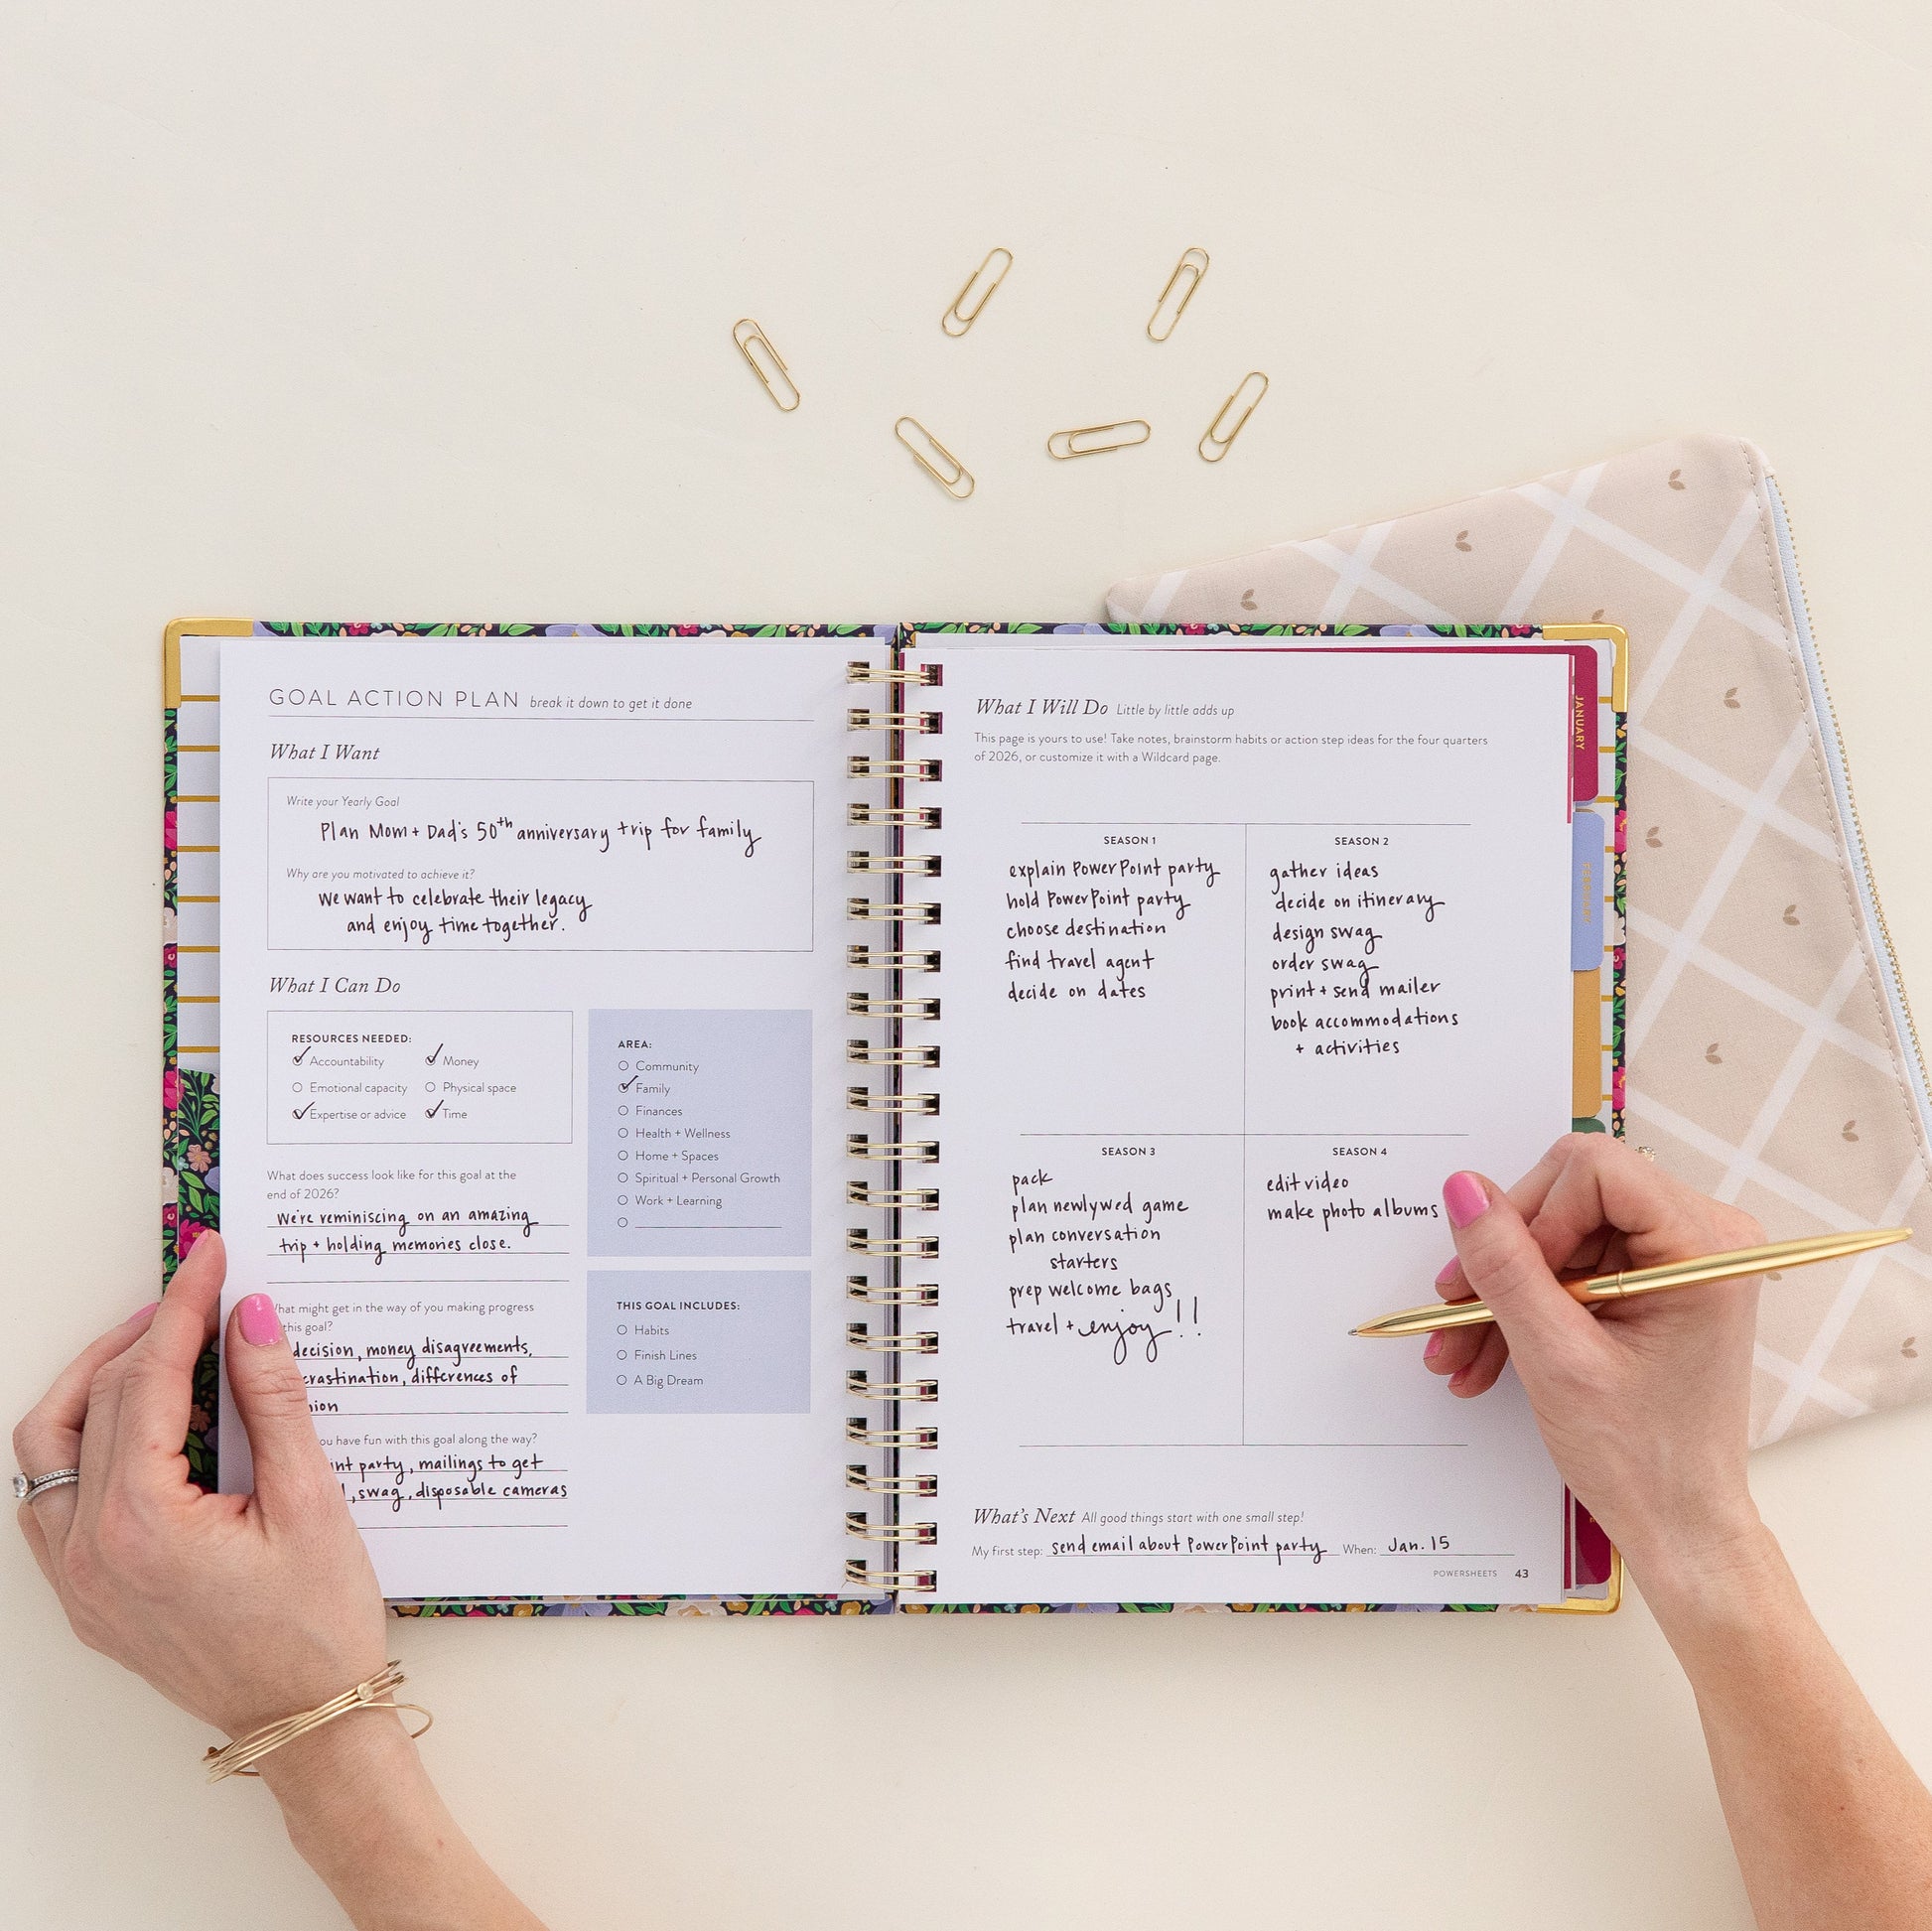 GOAL ACTION PLAN break it down to get it done
What I Want
Write your Yearly Goal
Plan Mom + Dad's 50th anniversary trip for family
Why are you motivated to achieve it?
we want to celebrate their legacy
and enjoy time together.
What I Can Do
RESOURCES NEEDED:
Accountability Money
Emotional capacity Physical space
Expertise or advice Time
AREA:
Community
Family
Finances
Health + Wellness
Home + Spaces
Spiritual + Personal Growth
Work + Learning
What does success look like for this goal at the
end of 2026?
We're reminiscing on an amazing
trip + holding memories close.
might get in the way of you making progress
this goal?
money disagreements,
differences of
THIS GOAL INCLUDES:
Habits
Finish Lines
A Big Dream
you have fun with this goal along the way?
party, mailings to get
, swag, disposable cameras
What I Will Do Little by little adds up
This page is yours to use! Take notes, brainstorm habits or action step ideas for the four quarters
of 2026, or customize it with a Wildcard page.
SEASON 1
explain PowerPoint party
hold PowerPoint party
choose destination
find travel agent
decide on dates
SEASON 2
gather ideas
decide on itinerary
design swag
order swag
print + send mailer
book accommodations
+ activities
SEASON 3
pack
plan newlywed game
plan conversation
starters
prep welcome bags
travel + enjoy!!
SEASON 4
edit video
make photo albums
What's Next All good things start with one small step!
My first step: send email about PowerPoint party When: Jan. 15
POWERSHEETS 43
JANUARY
FEBRUARY